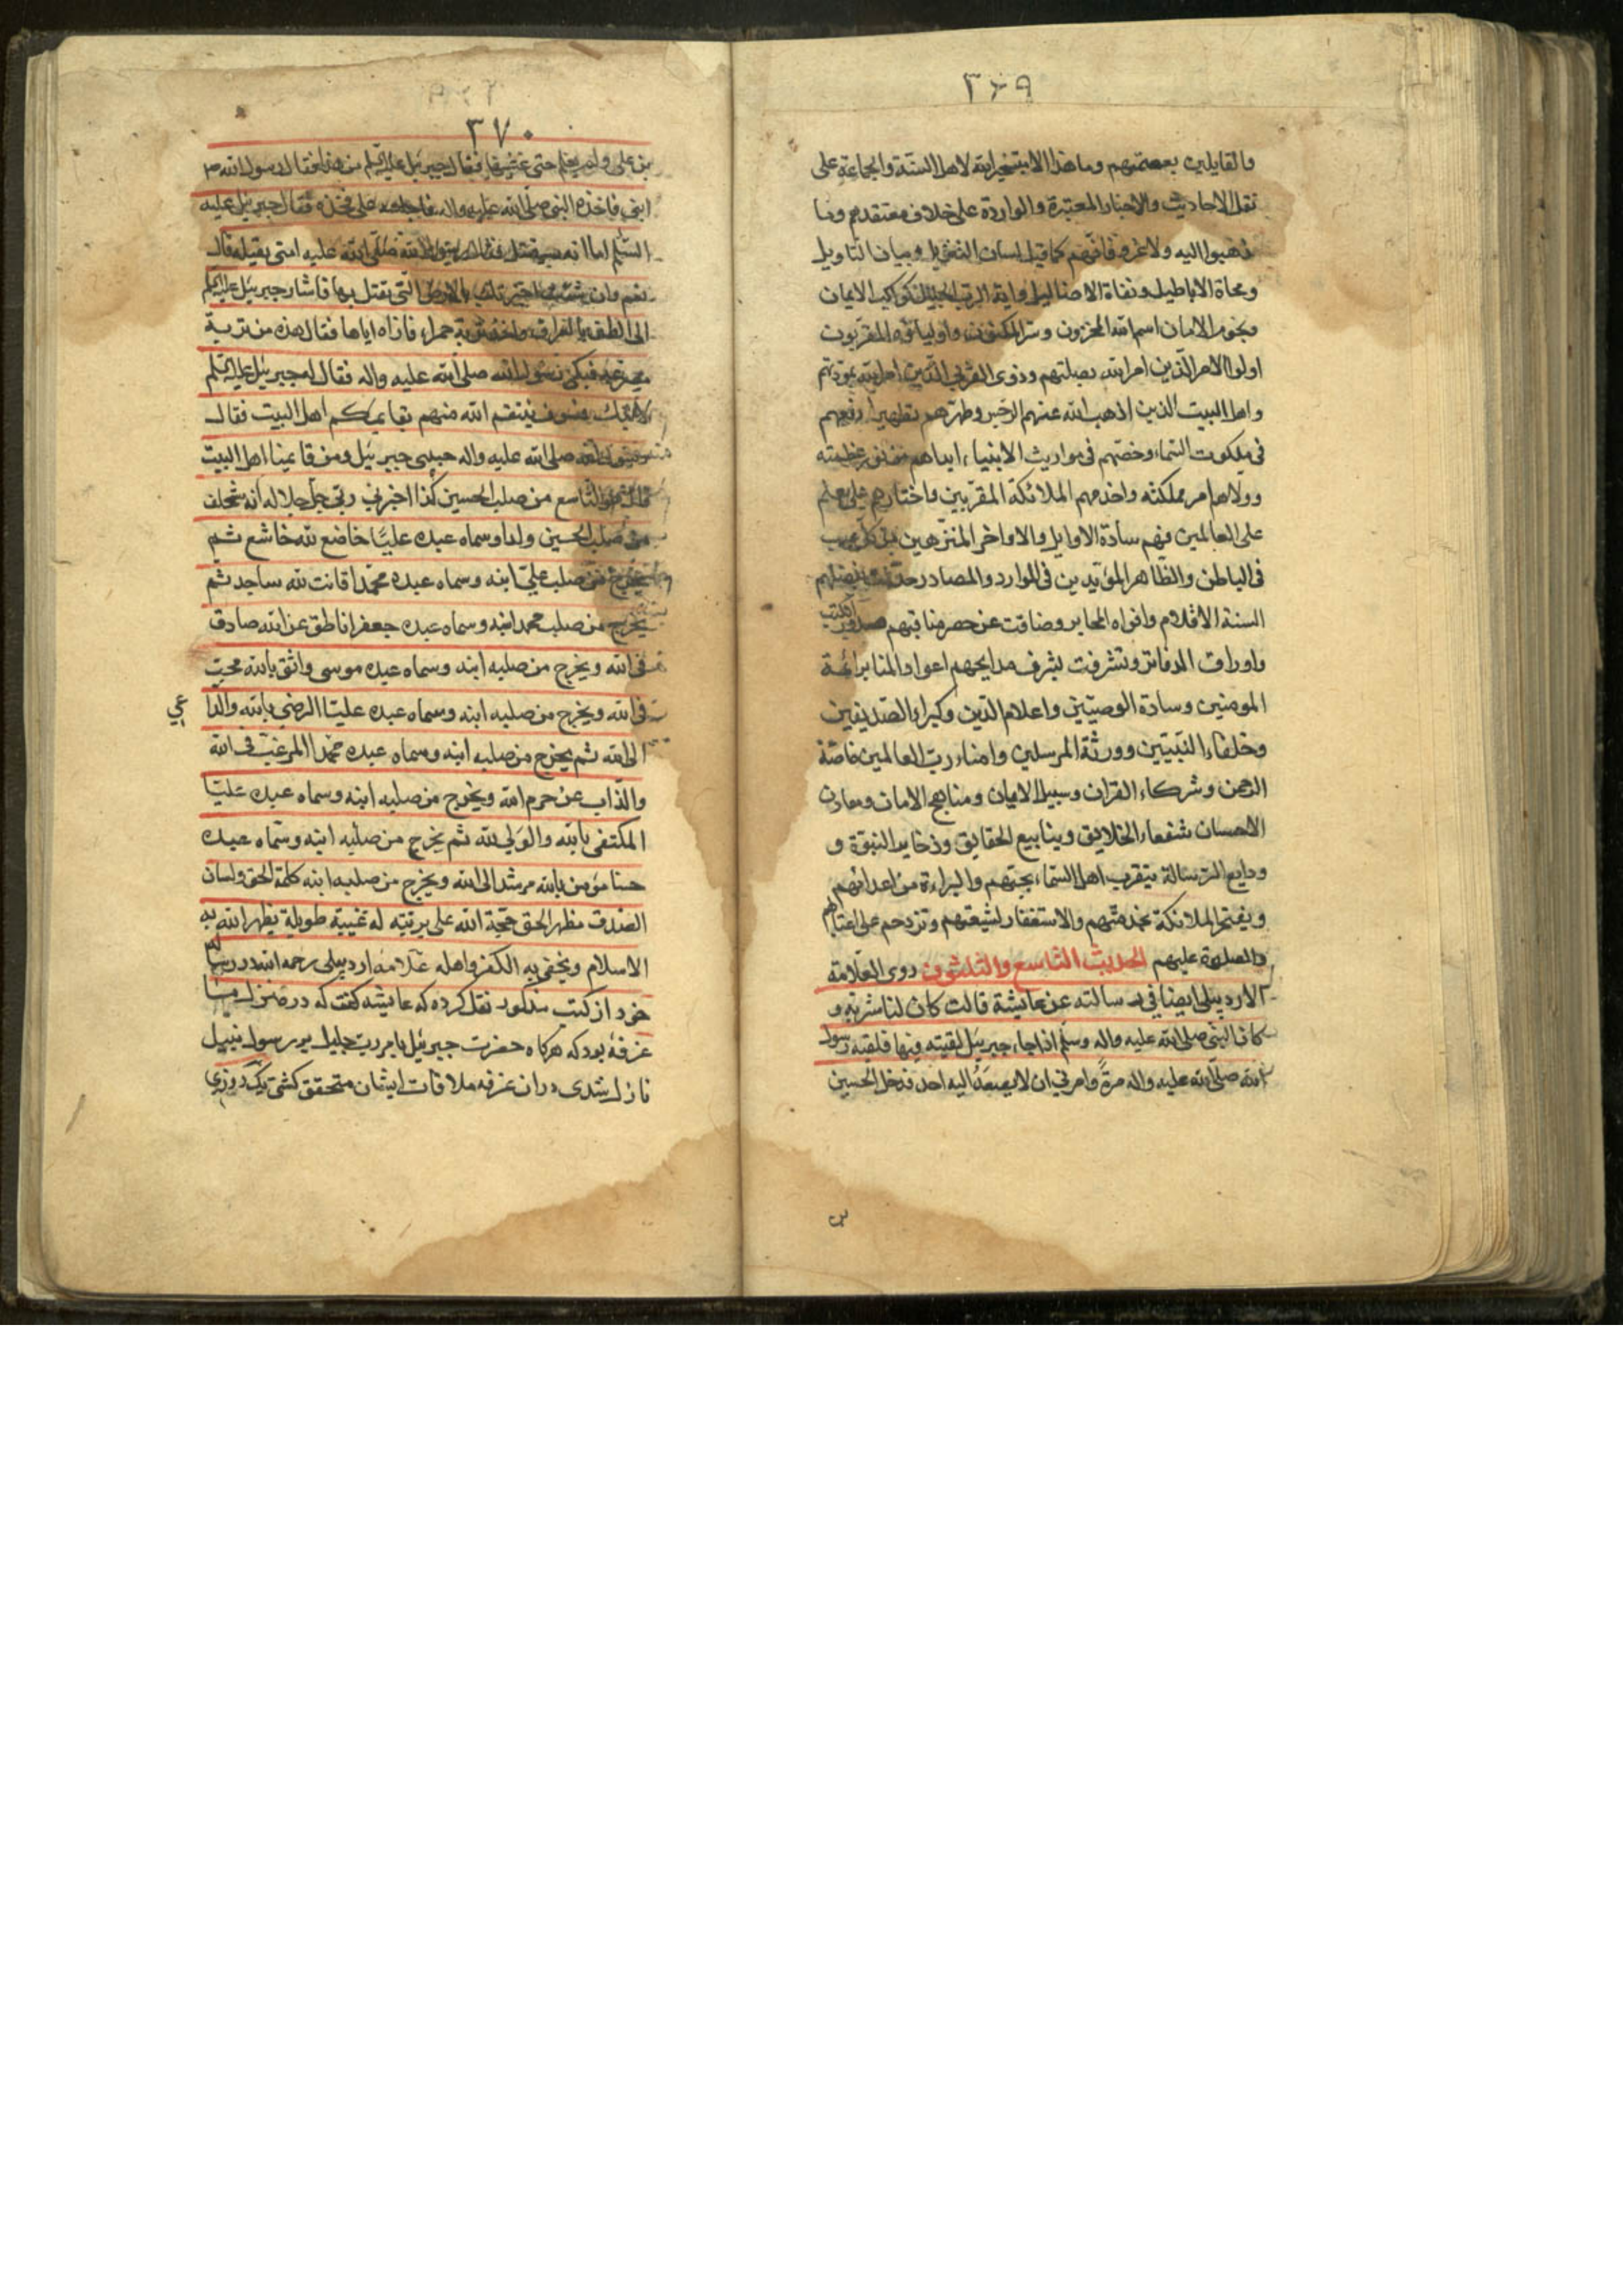 ٣٦٩
والقايلين بعصمتهم وما هذا الا بتسخير الله لاهل السنة والجماعة على
نقل الاحاديث والاخبار المعتبرة والواردة على خلاف معتقدهم وما
ذهبوا اليه ولا غرو فانهم كما قيل لسان التنزيل وبيان التاويل
ومحاة الاباطيل ونفاة الاضاليل واية الرب الجليل كواكب الايمان
ونجوم الامان اسم الله المخزون وسر المكنون واولياؤه المقربون
اولوا الامر الذين امر الله بصلتهم وذوى القربى الذين امر الله بمودتهم
واهل البيت الذين اذهب الله عنهم الرجس وطهرهم تطهيرا رفعهم
فى ملكوت السماء وخصهم فى مواريث الانبياء ابداهم من نور عظمته
وولاهم امر مملكته واخدمهم الملائكة المقربين واختارهم على علم
على العالمين فهم سادة الاوايل والاواخر المنزهين عن كل عيب
فى الباطن والظاهر المؤيدين فى الموارد والمصادر بفضلهم
السنة الاقلام وافواه المحابر وضاقت عن حصر مناقبهم صدور الكتب
واوراق الدفاتر وتشرفت بشرف مدايحهم اعواد المنابر ائمة
المومنين وسادة الوصيين واعلام الدين وكبراء الصديقين
وخلفاء النبيين وورثة المرسلين وامناء رب العالمين خاصة
الرحمن وشركاء القران وسبيل الايمان ومناهج الامان ومعادن
الاحسان شفعاء الخلايق وينابيع الحقايق وذخاير النبوة و
ودايع الرسالة يتقرب اهل السماء بحبهم والبراءة من اعدائهم
ويفتخر الملائكة بخدمتهم والاستغفار لشيعتهم وتزدحم على اعتابهم
والصلوة عليهم الحديث التاسع والثلثون روى العلامة
الاردبيلى ايضا فى رسالته عن عايشة قالت كان لنا شربة و
كان النبى صلى الله عليه واله وسلم اذا جاء جبرئيل لقيته فيها فلقيه رسول
الله صلى الله عليه واله مرة وامرنى ان لا يصعد اليه احد فدخل الحسين
٣٧٠
بن على ولم يعلم حتى غشيها فقال جبرئيل عليه السلم من هذا فقال رسول الله ص
ابنى فاخذه النبى صلى الله عليه واله فاجلسه على فخذه فقال جبرئيل عليه
السلم اما انه سيقتل فقال رسول الله صلى الله عليه امتى يقتله قال
نعم وان شئت اخبرتك بالارض التى يقتل بها فاشار جبرئيل عليه السلم
الى الطف بالعراق واخذ تربة حمراء فاراه اياها فقال هذه من تربة
مصرعه فبكى رسول الله صلى الله عليه واله فقال له جبرئيل عليه السلم
لا تبك فسوف ينتقم الله منهم بقايمكم اهل البيت فقال
رسول الله صلى الله عليه واله حبيبى جبرئيل ومن قايمنا اهل البيت
قال هو التاسع من صلب الحسين كذا اخبرنى ربى جل جلاله انه سيخلق
من صلب الحسين ولدا وسماه عبده عليا خاضع لله خاشع ثم
يخرج من صلب على ابنه وسماه عبده محمدا قانت لله ساجد ثم
يخرج من صلب محمد ابنه وسماه عبده جعفرا ناطق عن الله صادق
فى الله ويخرج من صلبه ابنه وسماه عبده موسى واثق بالله محب
فى الله ويخرج من صلبه ابنه وسماه عبده عليا الراضى بالله والداعى
الى الله ثم يخرج من صلبه ابنه وسماه عبده محمدا المرغب فى الله
والذاب عن حرم الله ويخرج من صلبه ابنه وسماه عبده عليا
المكتفى بالله والولى لله ثم يخرج من صلبه ابنه وسماه عبده
حسنا مؤمن بالله مرشد الى الله ويخرج من صلبه ابنه كلمة الحق ولسان
الصدق مظهر الحق حجة الله على بريته له غيبة طويلة يظهر الله به
الاسلام ويخفى به الكفر واهله علامه اردبيلى رحمه الله در رساله
خود از كتب مذكور نقل كرده كه عايشه كفت كه در منزل ما
غرفه بود كه هركاه حضرت جبرئيل بامر رب جليل بر رسول نبيل
نازل شدى در ان غرفه ملاقات ايشان متحقق كشتى يك روزى